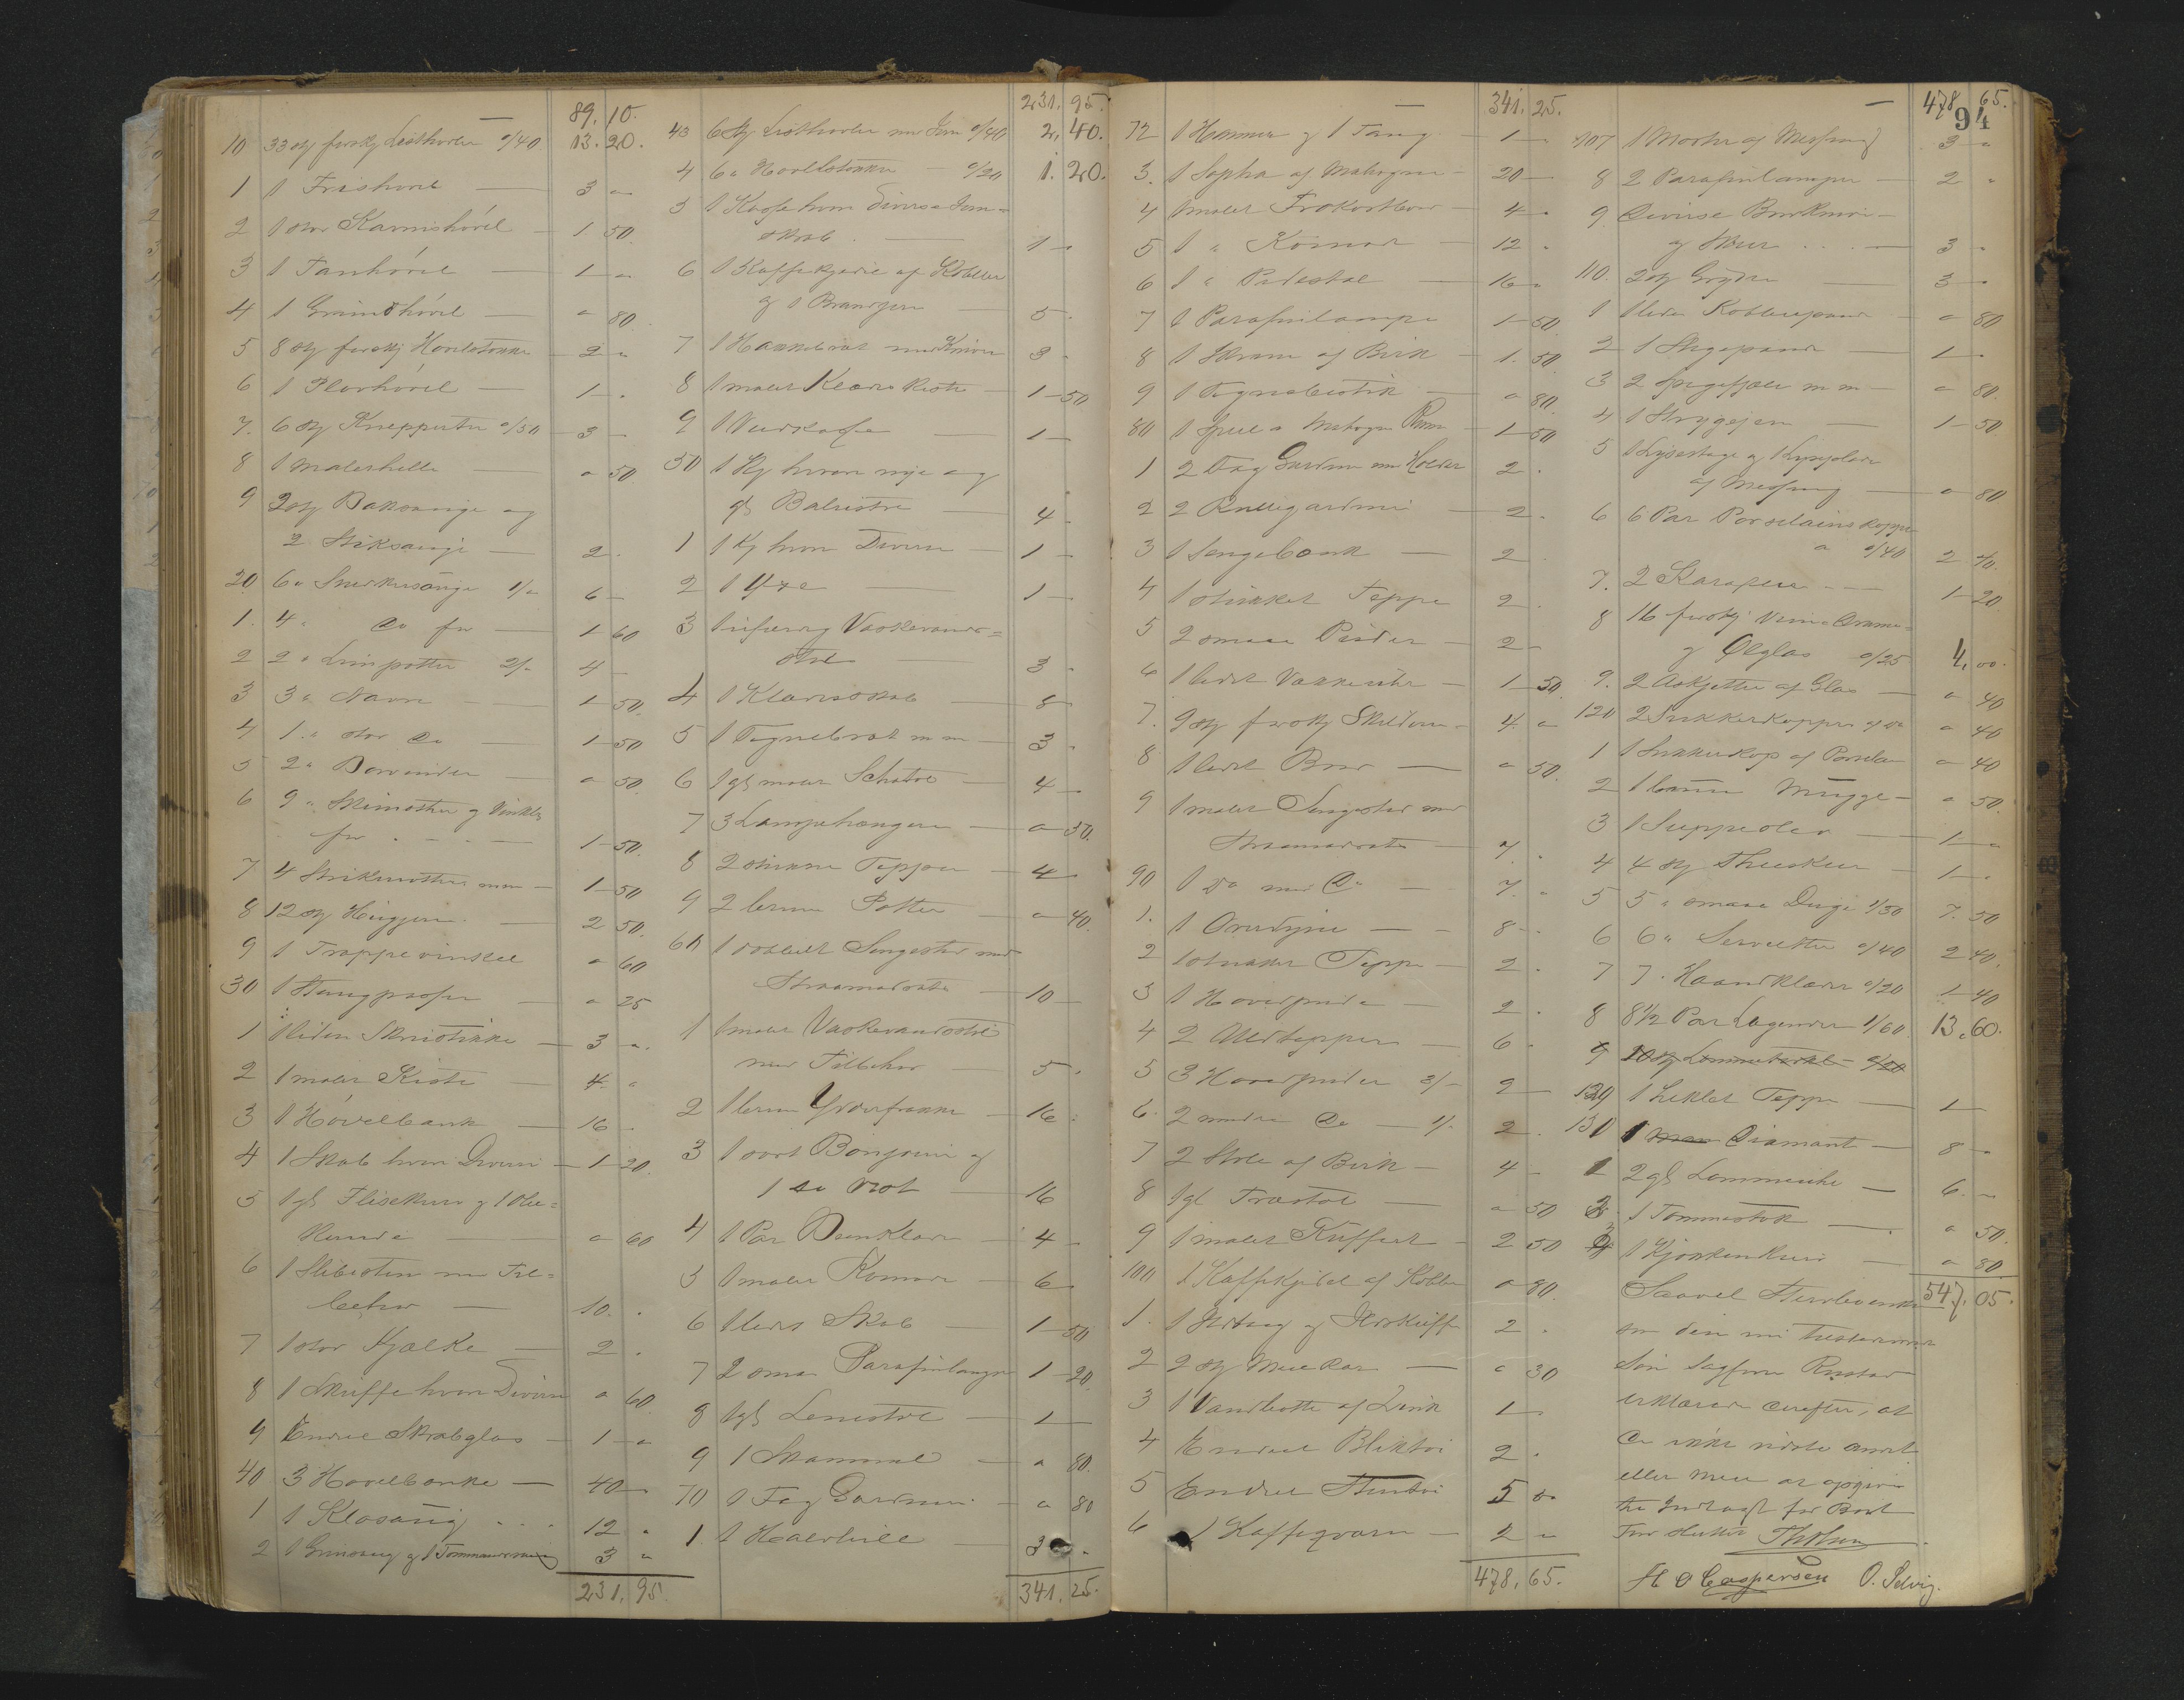 89. 10.
10 33 stk forskj Listhøvler a/40 13. 20.
1 1 Frishøvl — 3 "
2 1 stor Karnishövel — 1 50.
3 1 Tanhövel — 1 "
4 1 Grundhövel — " 80.
5 8 stk forskj Hövlstokke — 2 "
6 1 Plovhövel — 1 "
7. 6 stk a/50 3 —
8 1 — " 50
9 2 stk Baksauge og
2 Stiksauge — 2 "
20 6 " 1/" 6 —
1. 4 " Do for — 1 60
2 2 " Limpotter 2/" 4 —
3 3 " Navre — 1 50.
4 1 " stor Do — 1 50
5 2 " Borvinder — " 50.
6 9 " og Vinkler
for — 1 50.
7 4 — 1 50
8 12 stk Hugjern — 2 50.
9 1 Trappevinkel " 60
30 1 Stangpasser — " 25
1 1 liden — 3 "
2 1 malet Kiste — 4 "
3 1 Hövelbænk — 16 "
4 1 Skab hvori Diverse — 1 20.
5 1 gl Flisekurv og 1
— " 60
6 1 Slibesten med Til=
behør — 10. "
7 1 stor Kjælke — 2 "
8 1 Skuffe hvori Diverse " 60.
9 Endel Skabglas — 1 "
40 3 Hövelbænke — 40 —
1 1 Klosaug . . . 12 "
2 1 Grundsaug og 1 3 "
231. 95.
231. 95.
43 6 stk Listhøvler med Jern a/40 2. 40.
4 6 " Hövlstokke — a/20 1. 20.
5 1 Kasse hvori diverse Jern=
skrab. — 1 —
6 1 Kaffekjedel af Kobber
og 1 Brandjern — 5 "
7 1 Hakkebræt med Kniver 3 "
8 1 malet Klædes Kiste — 1 50
9 1 Vedkasse — 1 —
50 1 Kj hvori nye og
gl Balustre — 4 "
1 1 Kj hvori Diverse — 1 —
2 1 Øxe — 1 —
3 1 Vaskevands=
stol — 3 "
4 1 Klædesskab — 8 —
5 1 Tegnebræt m m — 3 "
6 1 gl malet Schatol — 4 —
7 3 Lampehængere — " 50.
8 2 strikkede Tepper — 4 —
9 2 brune Potter — " 40.
60 1 dobbelt Sengested med
Straamadrats — 10 —
1 1 malet Vaskevandsstol
med Tilbehør — 5 "
2 1 brun Yderfrakke — 16 "
3 1 sort Bonjour og
1 do Vest — 16
4 1 Par Benklæder — 4 —
5 1 malet Komode — 6 —
6 1 lidet Skab — 1 50
7 2 smaa Parafinlamper 1 20.
8 1 gl Lenestol — 1 —
9 1 Skammel — " 80.
70 1 Fag Gardiner — " 80
1 1 — 3 "
341. 25.
341. 25.
72 1 Hammer og 1 Tang — 1 —
3. 1 Sopha af Mahogni — 20 —
4 1 malet Frokostbord — 4 "
5 1 " Komode — 12 "
6 1 " Pidestal — 16 "
7 1 Parafinlampe 1 50
8 1 af Birk — 1. 50
9 1 Tegnebestik — " 80.
80 1 Speil i Mahogni Ramme — 1 50
1 2 Fag Gardiner med Holder 2 "
2 2 Rullegardiner — 2 "
3 1 Sengebænk — 2
4 1 strikket Teppe 2 "
5 2 smaa Puder — 2 —
6 1 lidet Vækkeuhr — 1 50.
7. 9 stk forskj Skilderier 4 "
8 1 lidet Bord — " 50.
9 1 malet Sengested med
Straamadrats — 7 "
90 1 Do med Do — 7 "
1. 1 Overdyne — 8 —
2 1 strikket Teppe — 2 "
3 1 Hovedpude — 2 "
4 2 Uldtepper — 6 "
5 3 Hovedpuder 3/— 9 —
6. 2 mindre Do — 1/" 2 "
7 2 Stole af Birk — 4 —
8 1 gl Træstol — " 50
9 1 malet Kuffert — 2 50
100 1 Kaffekjedel af Kobber " 80.
1. 1 Ildtang og Ildskuffe 2 "
2 2 stk — " 30
3 1 Vandbøtte af Zink 1 —
4 Endel Bliktöi 2 "
5 Endel Stentöi 5 "
6 1 Kaffeqværn — 2 "
478. 65.
478 65.
94
107 1 Morter af Messing 3 "
8 2 Parafinlamper — 2 "
9 Diverse
og . . . — 3 "
110. 2 stk Gryder — 3 —
1 1 liden Kobberpande — " 80
2 1 Stegepande — 1 —
3 2 m m — " 80.
4 1 Strygejern — 1 50
5 1 Lysestage og 1 Lyseplade
af Messing — " 80
6 6 Par Porselains kopper
a a/40 2 40.
7. 2 Karafler — 1 20
8 16 forskj Viin Drams=
og Ölglas a/25 4. 00.
9. 2 Askjetter af Glas — " 40
120 2 Sukkerkopper af Do " 40
1 1 Sukkerkop af Porselæn " 40
2 1 brun Mugge — " 50.
3 1 Suppeslev — 1 "
4 4 stk Theskeer — 1 "
5 5 " smaa Duge 1/50 7. 50
6 6 " Servietter a/40 2 40.
7 7 " Haandklæder a/20 1 40
8 8 1/2 Par Lagener 1/60 13. 60.
9 10 stk Lommetørkl — a/20
129 1 heklet Teppe — 1 —
130 1 Diamant — 8 —
1 2 gl Lommeuhr — 6 —
2 1 Tommestok — " 50.
3 1 Kjøkken — " 80
547. 05.
Saavel
som den
Søn Sagfører Rustad
erklærede derefter, at
de ikke vidste andet
eller mere at opgive
til Indtægt for Boet
For
H O Caspersen O. Selvig.